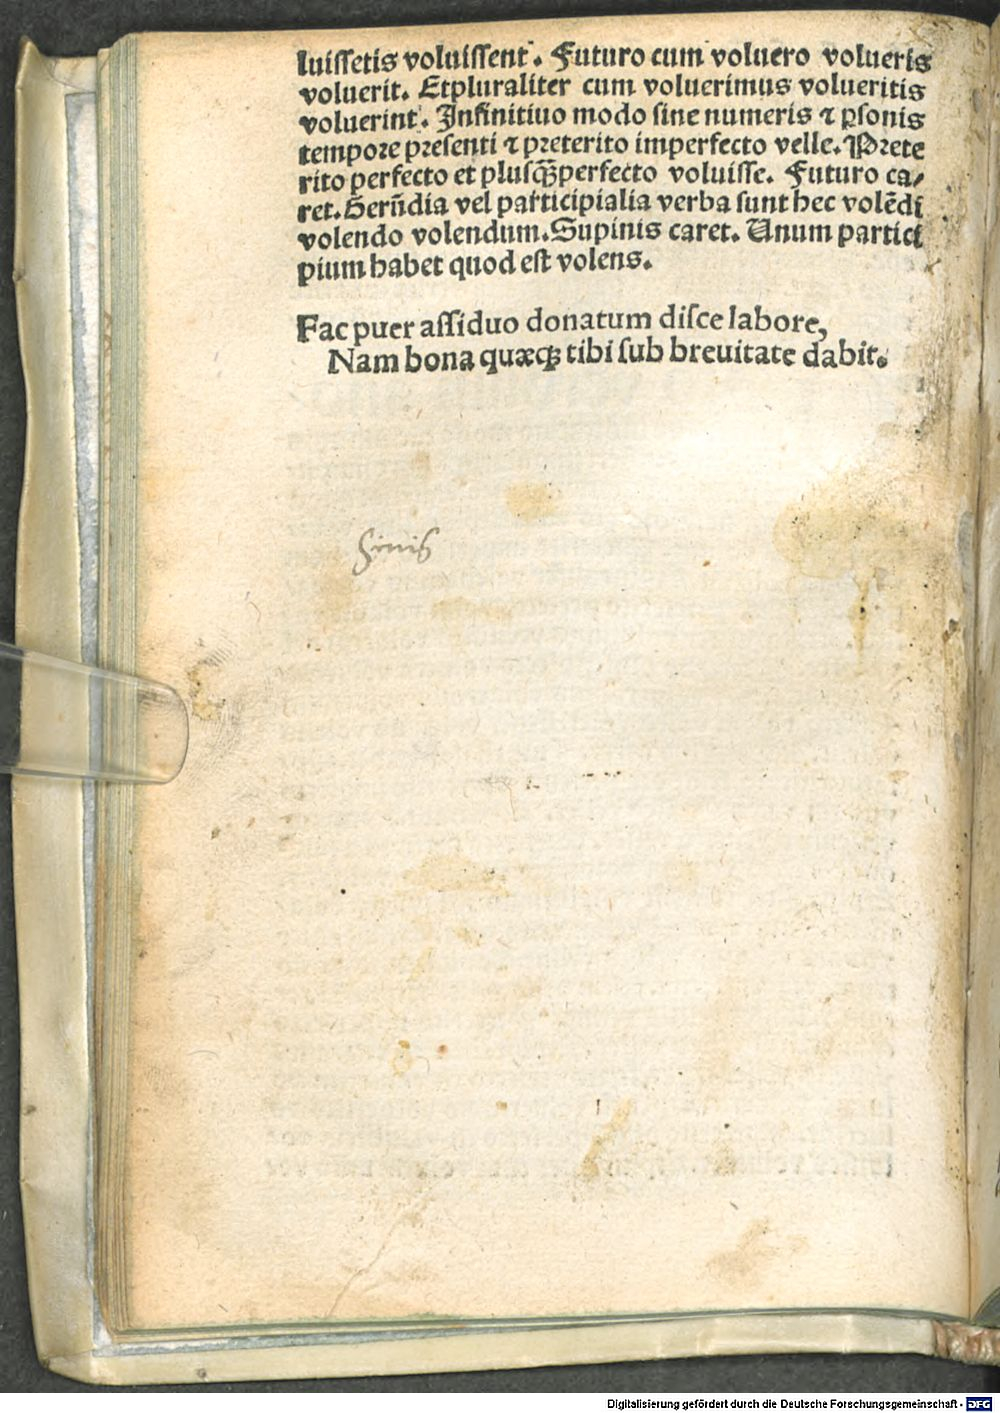 luissetis voluissent. Futuro cum voluero volueris
voluerit. Etpluraliter cum voluerimus volueritis
voluerint. Infinitiuo modo sine numeris ⁊ ꝑsonis
tempore presenti ⁊ preterito imperfecto velle. Prete
rito perfecto et plusq̃ꝑfecto voluisse. Futuro ca/
ret. Gerũdia vel participialia verba sunt hec volẽdi
volendo volendum. Supinis caret. Unum partici
pium habet quod est volens.
Fac puer assiduo donatum disce labore,
Nam bona quæqꝫ tibi sub breuitate dabit.
Finis
Digitalisierung gefördert durch die Deutsche Forschungsgemeinschaft - DFG